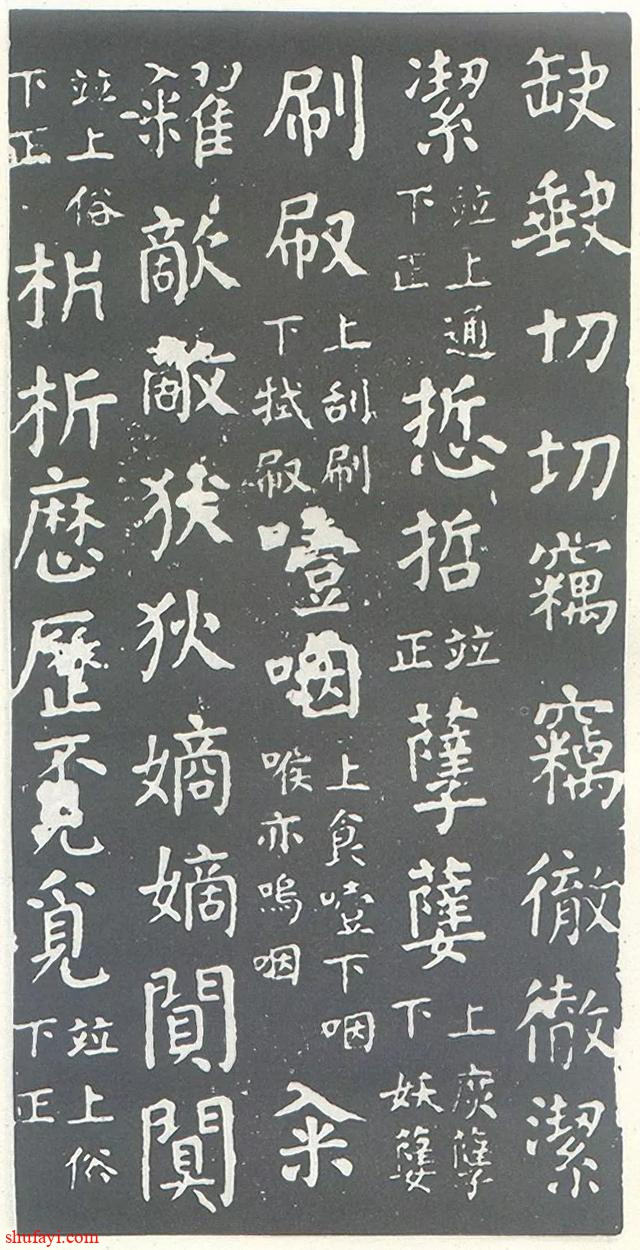 缺切切竊竊徹徹潔
潔竝上通下正悊哲竝正孽㜸上庶孽下妖㜸
刷㕞上刮刷下拭㕞噎咽上食噎下咽喉亦嗚咽籴
糴敵敵狄狄嫡嫡闃
竝上俗下正析厯歷覔覓竝上俗下正
shufayi.com